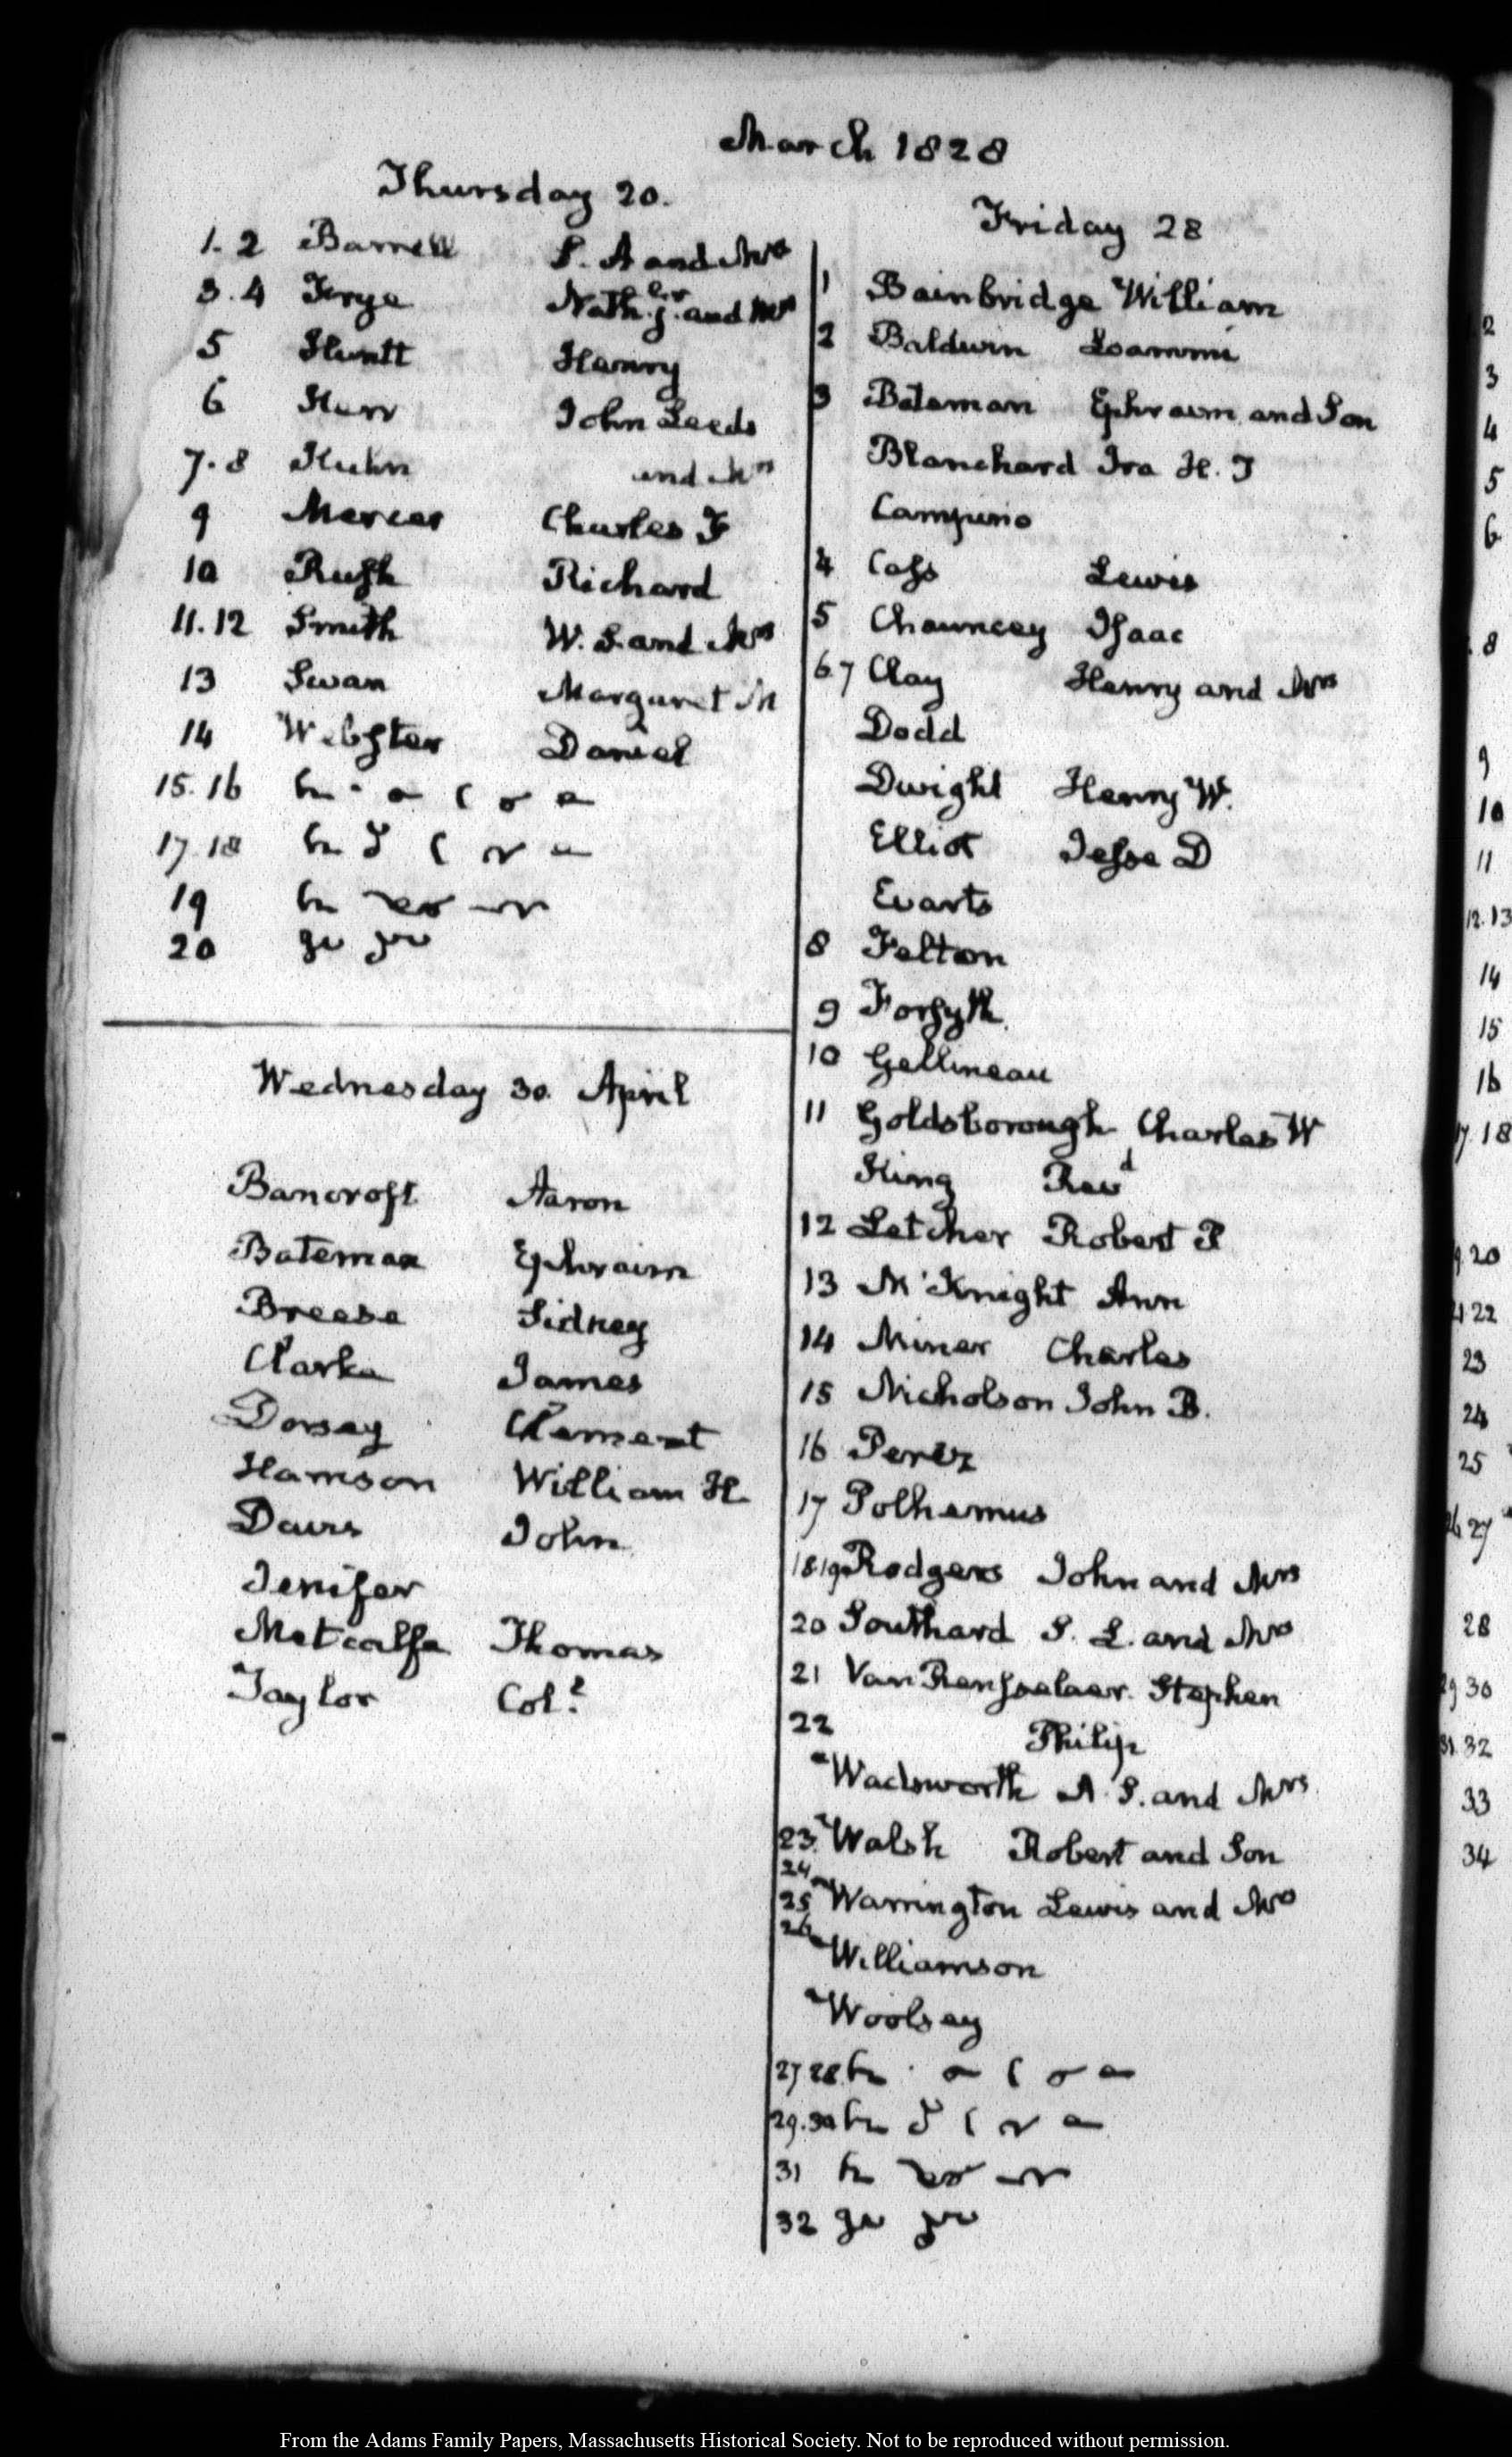 March 1828
Thursday 20.
1. 2 Barrell S. A and Mrs
3. 4 Frye Nathl. jr. and Mrs
5 Huntt Henry
6 Kerr John Leeds
7. 8 Kuhn and Mrs
9 Mercer Charles F
10 Rush Richard
11. 12 Smith W. S. and Mrs
13 Swan Margaret M
14 Webster Daniel
15. 16
17. 18
19
20
Wednesday 30. April
Bancroft Aaron
Bateman Ephraim
Breese Sidney
Clarke James
Dorsey Clement
Harrison William H.
Davis John
Jenifer
Metcalfe Thomas
Taylor Col.
Friday 28
1 Bainbridge William
2 Baldwin Loammi
3 Bateman Ephraim and Son
Blanchard Ira H. T
Campino
4 Cass Lewis
5 Chauncey Isaac
6. 7 Clay Henry and Mrs
Dodd
Dwight Henry W.
Elliot Jesse D
Evarts
8 Felton
9 Forsyth
10 Gellineau
11 Goldsborough Charles W
King Revd
12 Letcher Robert P
13 McKnight Ann
14 Miner Charles
15 Nicholson John B.
16
17 Polhemus
18 19 Rodgers John and Mrs
20 Southard S. L. and Mrs
21 Van Rensselaer. Stephen
22 Philip
Wadsworth A. S. and Mrs
23. Walsh Robert and Son
24
25 Warrington Lewis and Mrs
26
Williamson
Woolsey
27 28
29. 30
31
32
2
3
4
5
6
8
9
10
11
12. 13
14
15
16
17. 18
20
22
23
24
25
26 27
28
29 30
31. 32
33
34
From the Adams Family Papers, Massachusetts Historical Society. Not to be reproduced without permission.